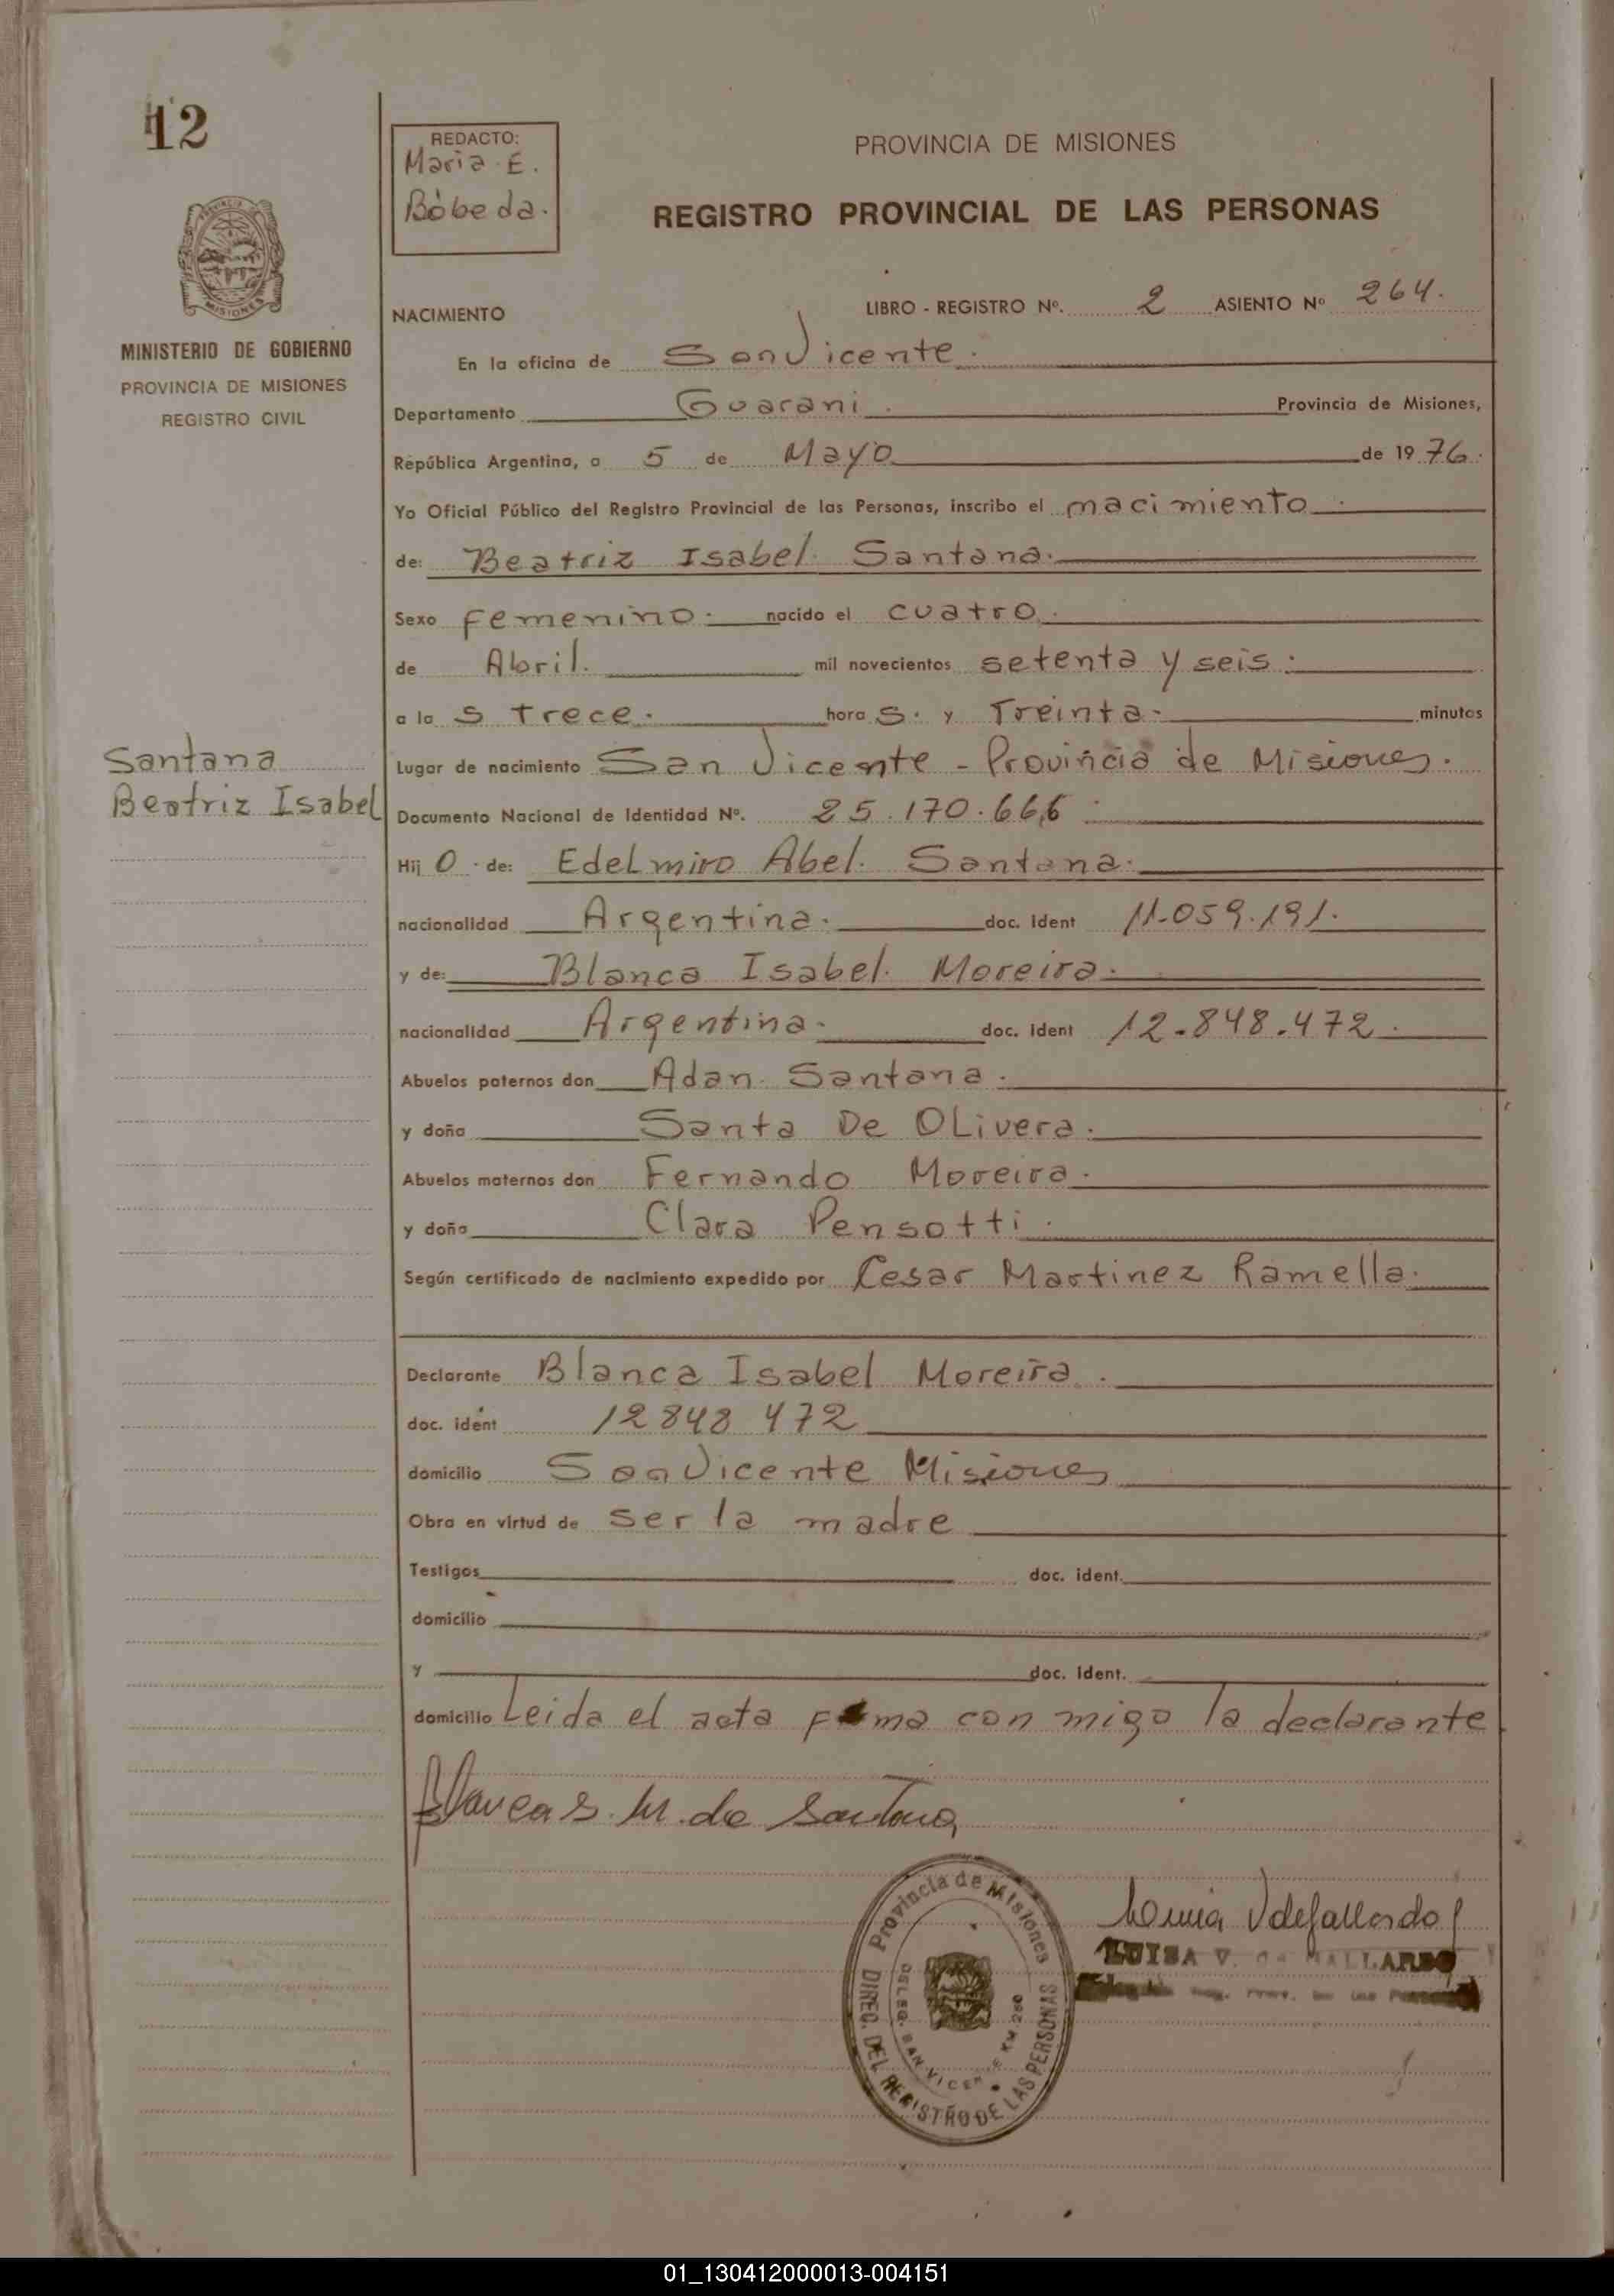 12
REDACTO:
Maria E.
Bòbeda.
PROVINCIA DE MISIONES
REGISTRO PROVINCIAL DE LAS PERSONAS
MISIONES
MINISTERIO DE GOBIERNO
PROVINCIA DE MISIONES
REGISTRO CIVIL
NACIMIENTO
LIBRO - REGISTRO Nº. 2 ASIENTO Nº 264.
En la oficina de San Vicente.
Departamento Guarani. Provincia de Misiones,
República Argentina, a 5 de Mayo de 1976.
Yo Oficial Público del Registro Provincial de las Personas, inscribo el nacimiento.
de: Beatriz Isabel. Santana.
Sexo femenino. nacido el cuatro.
de Abril. mil novecientos setenta y seis.
a la s trece. hora s. y Treinta. minutos
Lugar de nacimiento San Vicente - Provincia de Misiones.
Santana
Beatriz Isabel
Documento Nacional de Identidad Nº. 25.170.666.
Hij o. de: Edelmiro Abel. Santana.
nacionalidad Argentina. doc. Ident 11.059.191.
y de: Blanca Isabel. Moreira.
nacionalidad Argentina. doc. Ident 12.848.472.
Abuelos paternos don Adan. Santana.
y doña Santa De Olivera.
Abuelos maternos don Fernando Moreira.
y doña Clara Pensotti.
Según certificado de nacimiento expedido por Cesar Martinez Ramella.
Declarante Blanca Isabel Moreira.
doc. ident 12848 472
domicilio San Vicente Misiones
Obra en virtud de ser la madre
Testigos doc. ident.
domicilio
y doc. Ident.
domicilio Leida el acta firma con migo la declarante.
M. de Santana
Provincia de Misiones
DIREC. DEL REGISTRO DE LAS PERSONAS
DELEG. SAN VICENTE KM 260
LUISA V. DE GALLARDO
01_130412000013-004151